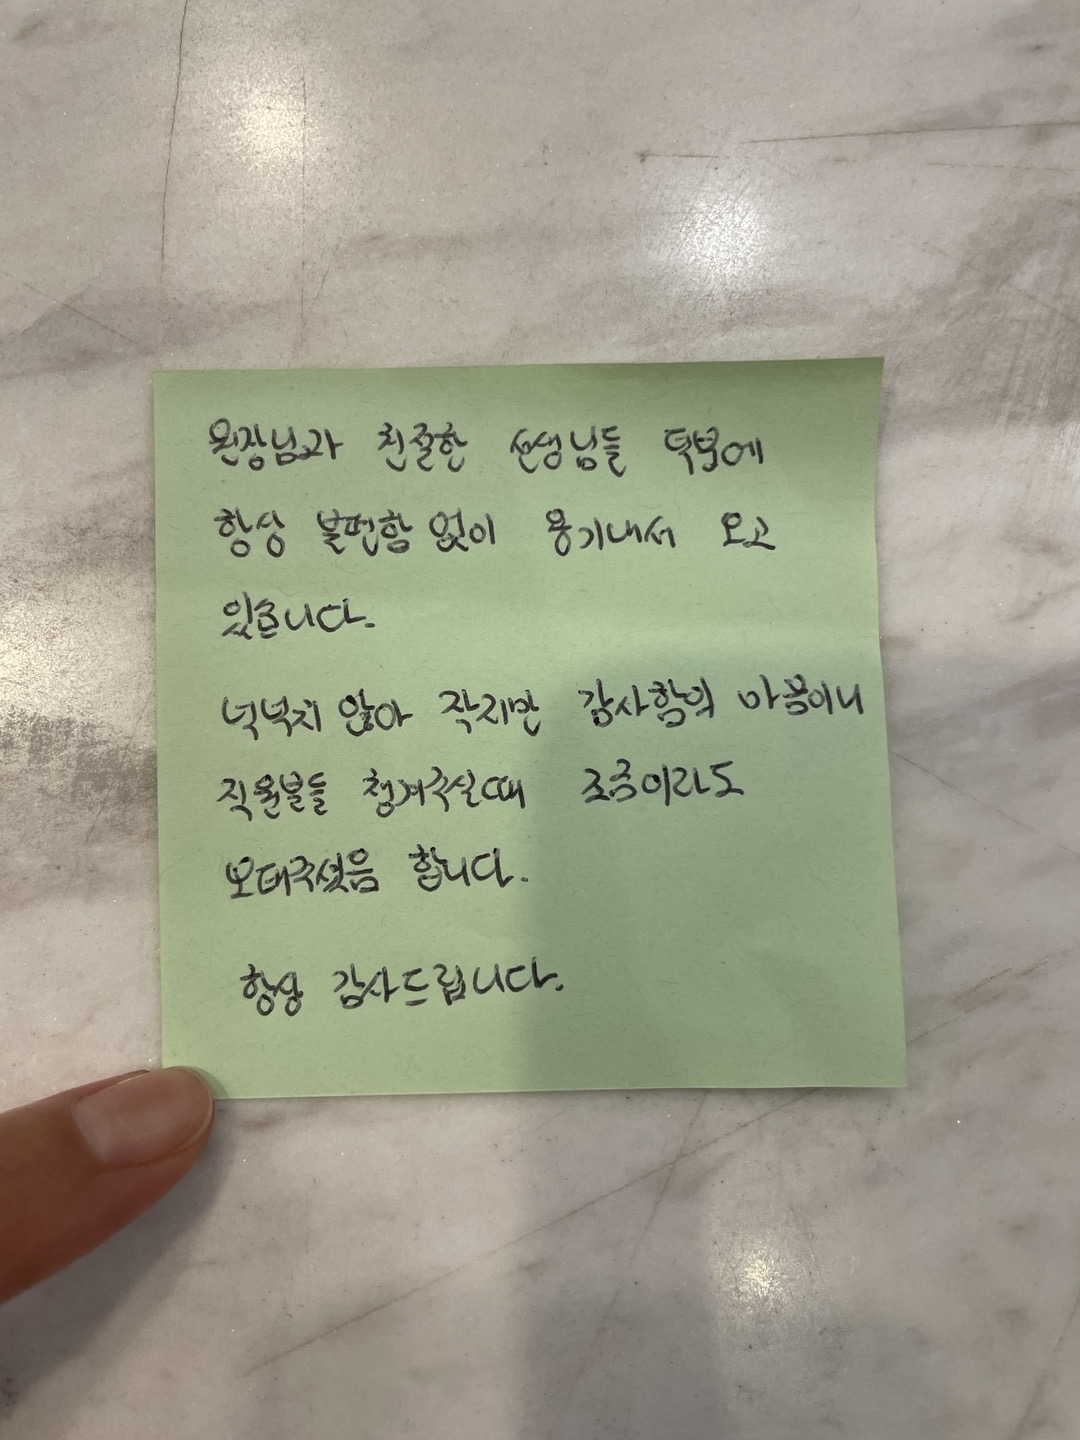 원장님과 친절한 선생님들 덕분에
항상 불편함 없이 용기내서 오고
있습니다.
넉넉치 않아 작지만 감사함의 마음이니
직원분들 챙겨주실때 조금이라도
보태주셨음 합니다.
항상 감사드립니다.